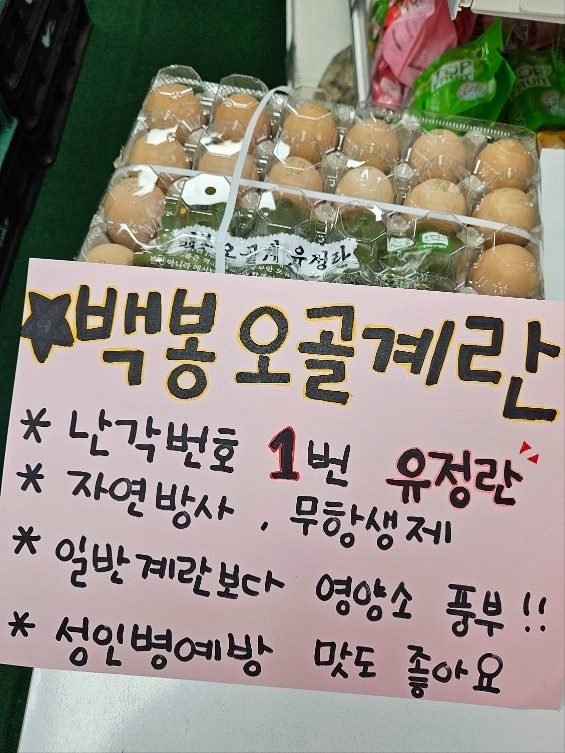 백봉오골계 유정란
★백봉 오골계란
* 난각번호 1번 유정란
* 자연방사, 무항생제
* 일반계란보다 영양소 풍부!!
* 성인병예방 맛도 좋아요